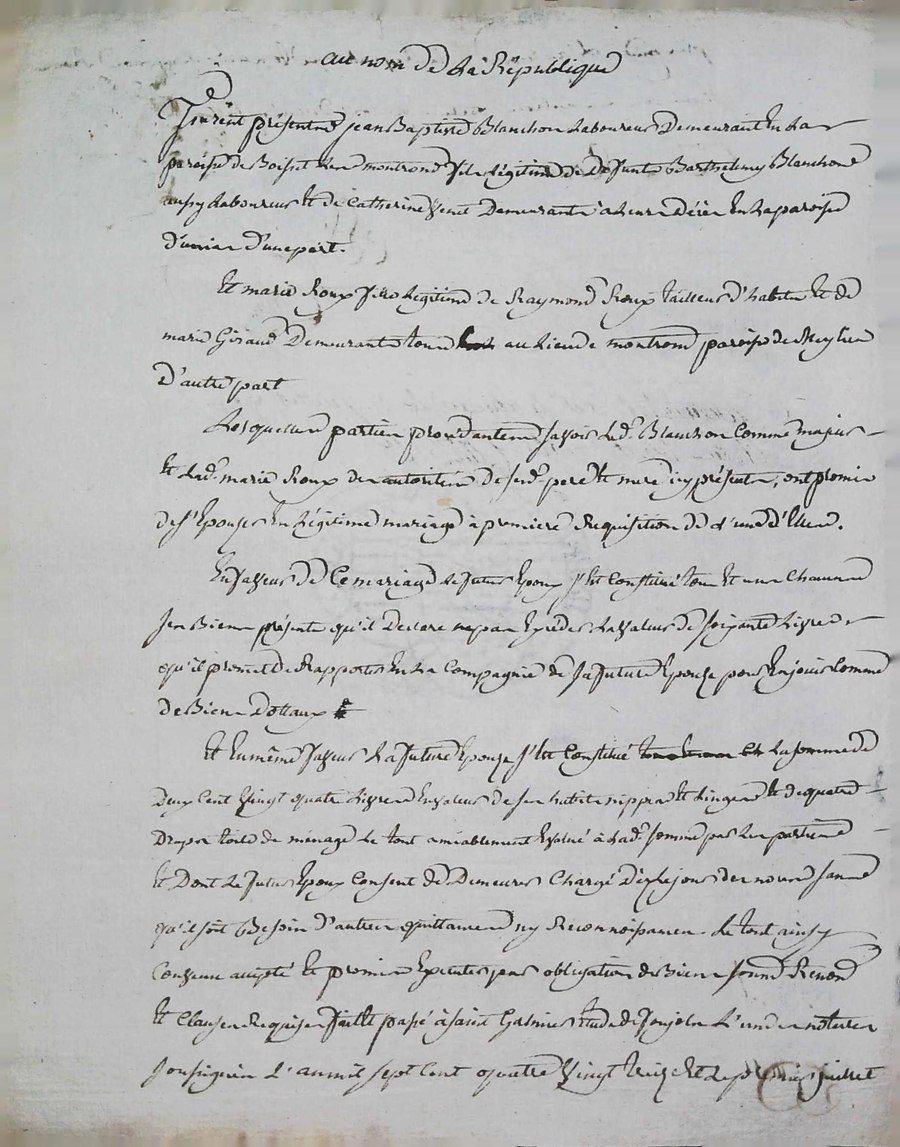 au nom de La République
Furent présents jean Baptiste Blanchon Laboureur Demeurant En La
paroisse de Boisset Les montrond fils Légitime de Defunt Barthelemy Blanchon
aussy Laboureur Et de Catherine Demeurante à Leur Décés En La paroisse
d'unias D'une part.
Et marie Roux fille Legitime de Raymond Roux tailleur d'habits Et de
marie Giraud Demeurants tous au Lieu de montrond paroisse de Meylieu
D'autre part
Lesquelles parties procédantes sçavoir Led. Blanchon Comme majeur
Et Lad. marie Roux de autorités de sesd. pere Et mere icy présents, ont promis
de s'Epouser En Légitime mariage à premiere Requisition de L'un d'Eux.
En faveur de Ce mariage Le futur Epoux s'Est Constitué tous Et uns Chacuns
ses Biens présents qu'il Declare ne pas Exceder La valeur de soixante Livres
qu'il promet de Rapporter En La Compagnie de sa future Epouse pour En jouir Comme
de Biens Dottaux
Et En même faveur La future Epouse s'Est Constitué La somme de
Deux Cent Vingt quatre Livres En valeur de ses habits nippes Et Linges Et de quatre
Draps toile de menage Le tout amiablement Evalué à Lad. somme par Les parties
Et Dont Le futur Epoux Consent de Demeurer Chargé Dès Le jour des noces sans
qu'il soit Besoin D'autres quittances ny Reconnoissances. Le tout ainsy
Convenu accepté Et promis Executer par obligation de Biens soumis Renond
Et Clauses Requises fait Et passé à saint Galmier Etude de Ponjols L'un des notaires
soussignés L'an mil sept Cent quatre Vingt treize Et Le premier juillet